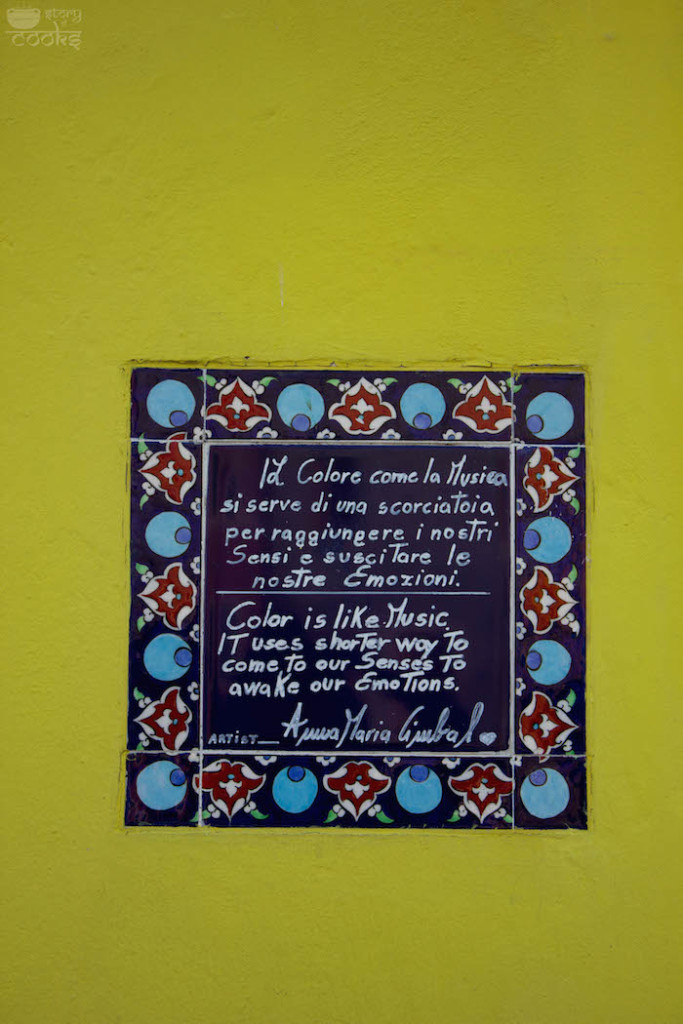 story
cooks
Il Colore come la Musica
si serve di una scorciatoia
per raggiungere i nostri
Sensi e suscitare le
nostre Emozioni.
Color is like Music.
IT uses shorter way To
come to our Senses To
awake our Emotions.
ARTIST_ Anna Maria